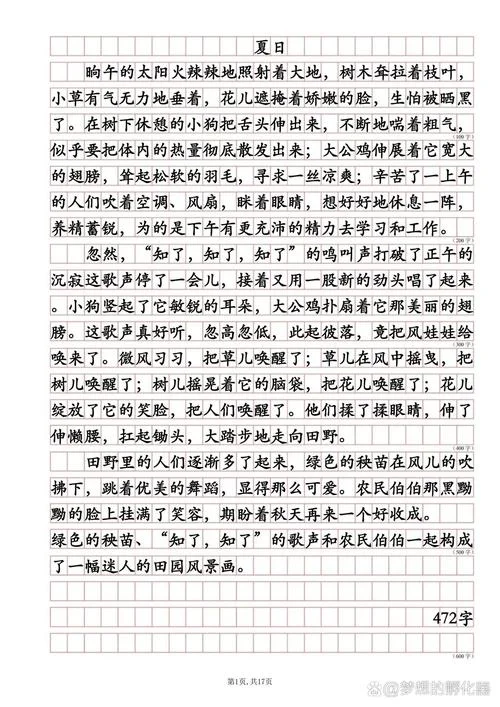 夏日
晌午的太阳火辣辣地照射着大地，树木耷拉着枝叶，
小草有气无力地垂着，花儿遮掩着娇嫩的脸，生怕被晒黑
了。在树下休憩的小狗把舌头伸出来，不断地喘着粗气，
（100字）
似乎要把体内的热量彻底散发出来；大公鸡伸展着它宽大
的翅膀，耸起松软的羽毛，寻求一丝凉爽；辛苦了一上午
的人们吹着空调、风扇，眯着眼睛，想好好地休息一阵，
养精蓄锐，为的是下午有更充沛的精力去学习和工作。
（200字）
忽然，“知了，知了，知了”的鸣叫声打破了正午的
沉寂这歌声停了一会儿，接着又用一股新的劲头唱了起来
。小狗竖起了它敏锐的耳朵，大公鸡扑扇着它那美丽的翅
膀。这歌声真好听，忽高忽低，此起彼落，竟把风娃娃给
（300字）
唤来了。微风习习，把草儿唤醒了；草儿在风中摇曳，把
树儿唤醒了；树儿摇晃着它的脑袋，把花儿唤醒了；花儿
绽放了它的笑脸，把人们唤醒了。他们揉了揉眼睛，伸了
伸懒腰，扛起锄头，大踏步地走向田野。
（400字）
田野里的人们逐渐多了起来，绿色的秧苗在风儿的吹
拂下，跳着优美的舞蹈，显得那么可爱。农民伯伯那黑黝
黝的脸上挂满了笑容，期盼着秋天再来一个好收成。
绿色的秧苗、“知了，知了”的歌声和农民伯伯一起构成
（500字）
了一幅迷人的田园风景画。
472字
（600字）
第1页，共17页
@梦想的孵化器